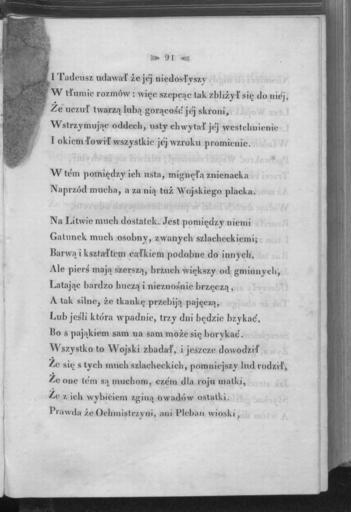 91
I Tadeusz udawał że jéj niedosłyszy
W tłumie rozmów: więc szepcąc tak zbliżył się do niéj,
Że uczuł twarzą lubą gorącość jéj skroni,
Wstrzymując oddech, usty chwytał jéj westchnienie
I okiem łowił wszystkie jéj wzroku promienie.
W tém pomiędzy ich usta, mignęła znienacka
Naprzód mucha, a za nią tuż Wojskiego placka.
Na Litwie much dostatek. Jest pomiędzy niemi
Gatunek much osobny, zwanych szlacheckiemi;
Barwą i kształtem całkiem podobne do innych,
Ale pierś mają szerszą, brzuch większy od gminnych,
Latając bardzo huczą i nieznośnie brzęczą,
A tak silne, że tkankę przebiją pajęczą,
Lub jeśli która wpadnie, trzy dni będzie bzykać,
Bo s pająkiem sam na sam może się borykać.
Wszystko to Wojski zbadał, i jeszcze dowodził
Że się s tych much szlacheckich, pomniejszy lud rodził,
Że one tém są muchom, czém dla roju matki,
Że z ich wybiciem zginą owadów ostatki.
Prawda że Ochmistrzyni, ani Pleban wioski,